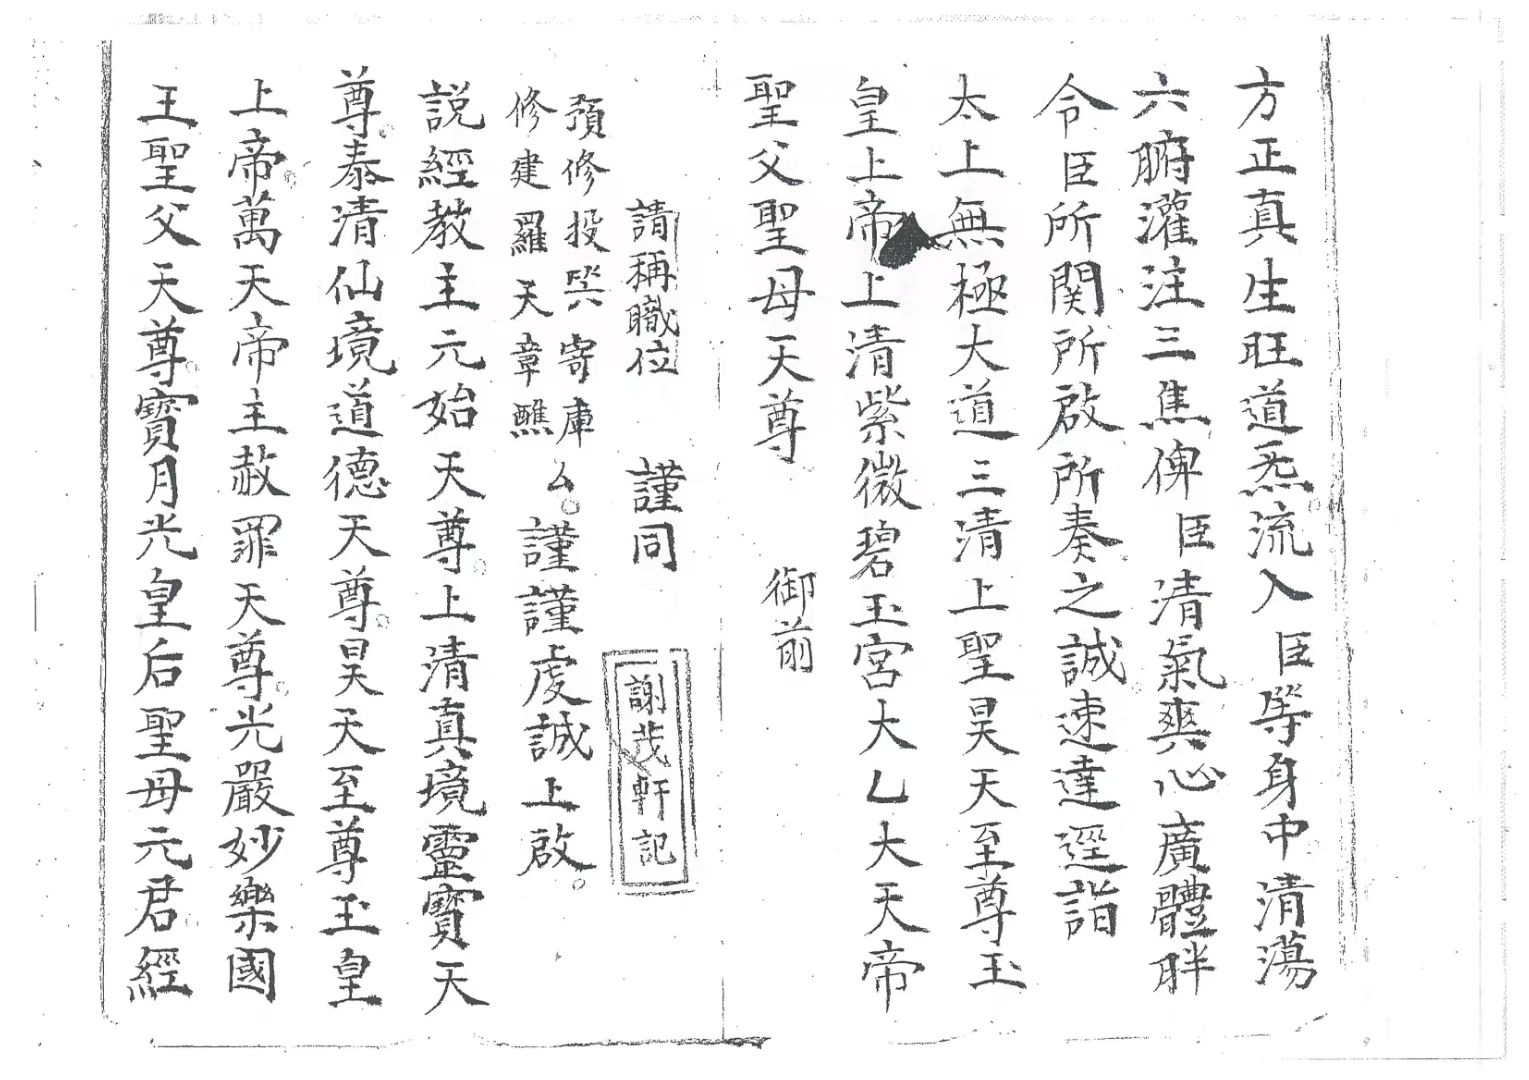 方正真生旺道炁流入臣等身中清蕩
六腑灌注三焦俾臣清氣爽心廣體胖
令臣所関所啟所奏之誠速達逕詣
太上無極大道三清上聖昊天至尊玉
皇上帝上清紫微碧玉宮大乙大天帝
聖父聖母天尊
御前
請稱職位 謹同
謝茂軒記
預修投 寄庫
修建羅天章醮
厶謹謹虔誠上啟
説經教主元始天尊上清真境靈寶天
尊泰清仙境道德天尊昊天至尊玉皇
上帝萬天帝主赦罪天尊光嚴妙樂國
王聖父天尊寶月光皇后聖母元君經